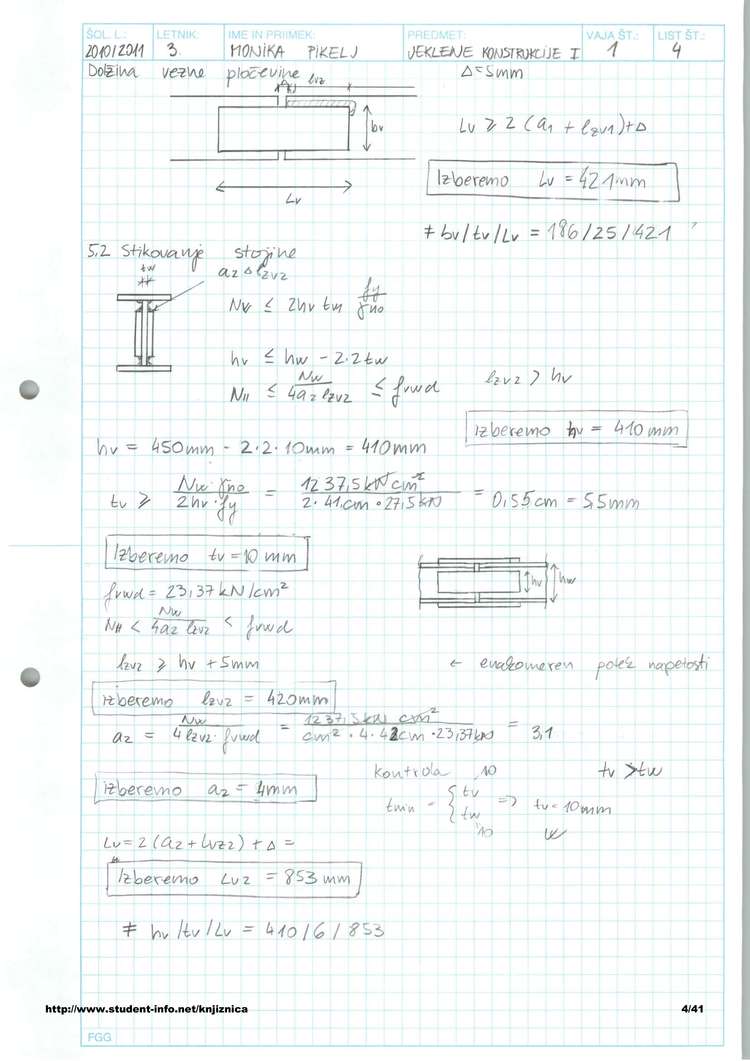 ŠOL. L.: LETNIK: IME IN PRIIMEK: PREDMET: VAJA ŠT.: LIST ŠT.:
2010/2011 3. MONIKA PIKELJ JEKLENE KONSTRUKCIJE I 1 4
Dolžina vezne pločevine
Δ = 5mm
bv
Lv
Lv ≥ 2 (a1 + lzv1) + Δ
Izberemo Lv = 421mm
≠ bv/tv/Lv = 186/25/421
5.2 Stikovanje stojine
tw
a2 Δ lzv2
Nw ≤ 2hv tw fy/γm0
hv ≤ hw - 2·2tw
N|| ≤ Nw/4a2 lzv2 ≤ fvwd
lzv2 > hv
Izberemo hv = 410 mm
hv = 450mm - 2·2·10mm = 410mm
tv ≥ Nw·γm0/2hv·fy = 1237,5kN cm²/2·41cm·27,5kN = 0,55cm = 5,5mm
Izberemo tv = 10 mm
hv hw
fvwd = 23,37 kN/cm²
N|| < Nw/4a2 lzv2 < fvwd
lzv2 ≥ hv + 5mm
← enakomeren potek napetosti
izberemo lzv2 = 420mm
a2 = Nw/4 lzv2·fvwd = 1237,5kN cm²/cm²·4·42cm·23,37kN = 3,1
kontrola 10
tv > tw
izberemo a2 = 4mm
tmin = {tv tw => tv = 10mm
10
Lv = 2(a2 + lvz2) + Δ =
Izberemo Lv2 = 853 mm
≠ hv/tv/Lv = 410/6/853
http://www.student-info.net/knjiznica
4/41
FGG